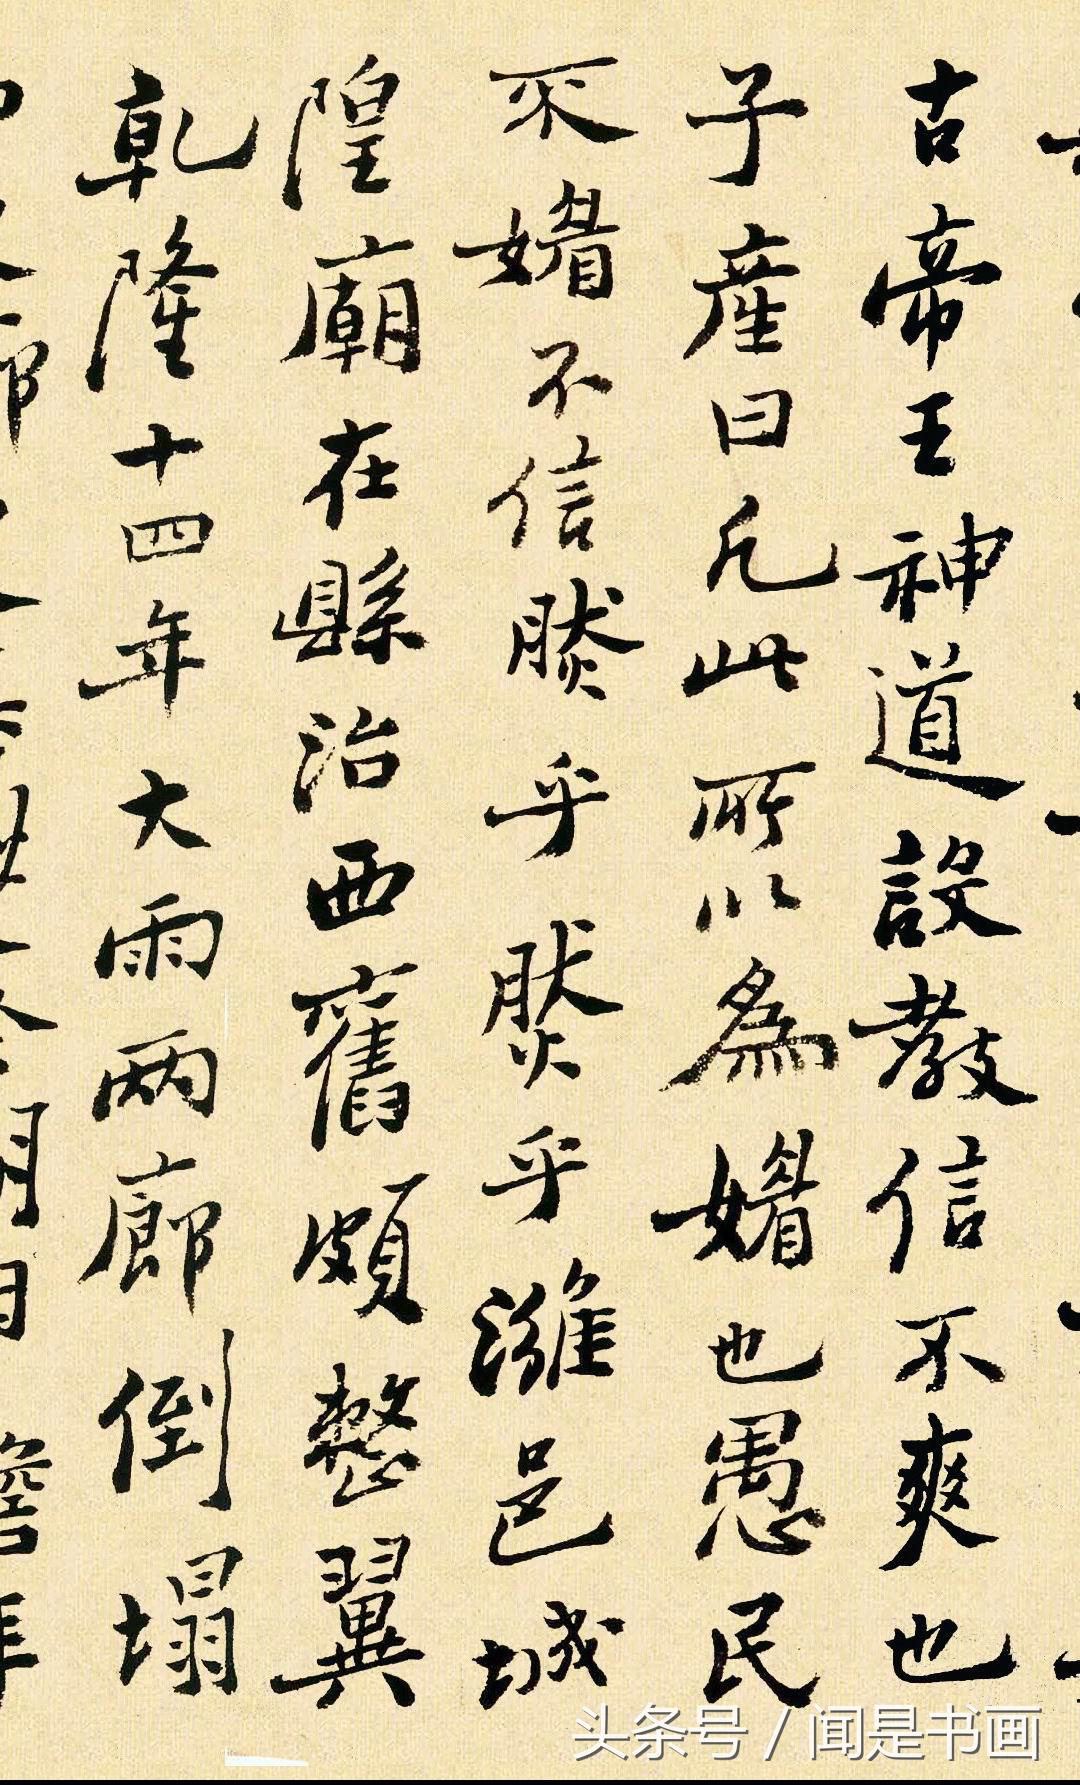 古帝王神道設教信不爽也
子產曰凡此所以為媚也愚民
不媚不信然乎然乎濰邑城
隍廟在縣治西舊頗整翼
乾隆十四年大雨两廊倒塌
头条号 / 闻是书画